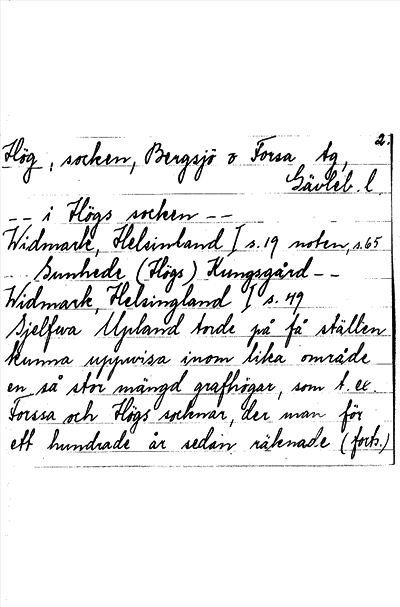 2.
Hög, socken, Bergsjö o Forsa tg,
Gävleb. l.
-- i Högs socken --
Widmark, Helsinland I s. 19 noten, s. 65
-- Sunhede (Högs) Kungsgård --
Widmark, Helsingland I s. 49
Sjelfva Upland torde på få ställen
kunna uppvisa inom lika område
en så stor mängd grafhögar, som t. ex.
Forssa och Högs socknar, der man för
ett hundrade år sedan räknade (forts.)